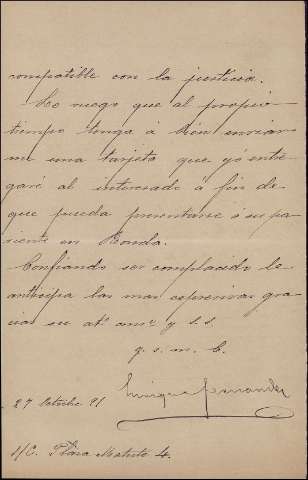 compatible con la justicia.
Le ruego que al propio
tiempo tenga á bien enviar
me una tarjeta que yó entre
garé al interesado á fin de
que pueda presentarse á su pa
riente en Ronda.
Confiando ser complacido le
anticipa las mas expresivas gra
cias su at.º am.º y s.s.
q. s. m. b.
Enrique Fernandez
27 Octubre 91
S/C. Plaza Matute 4.